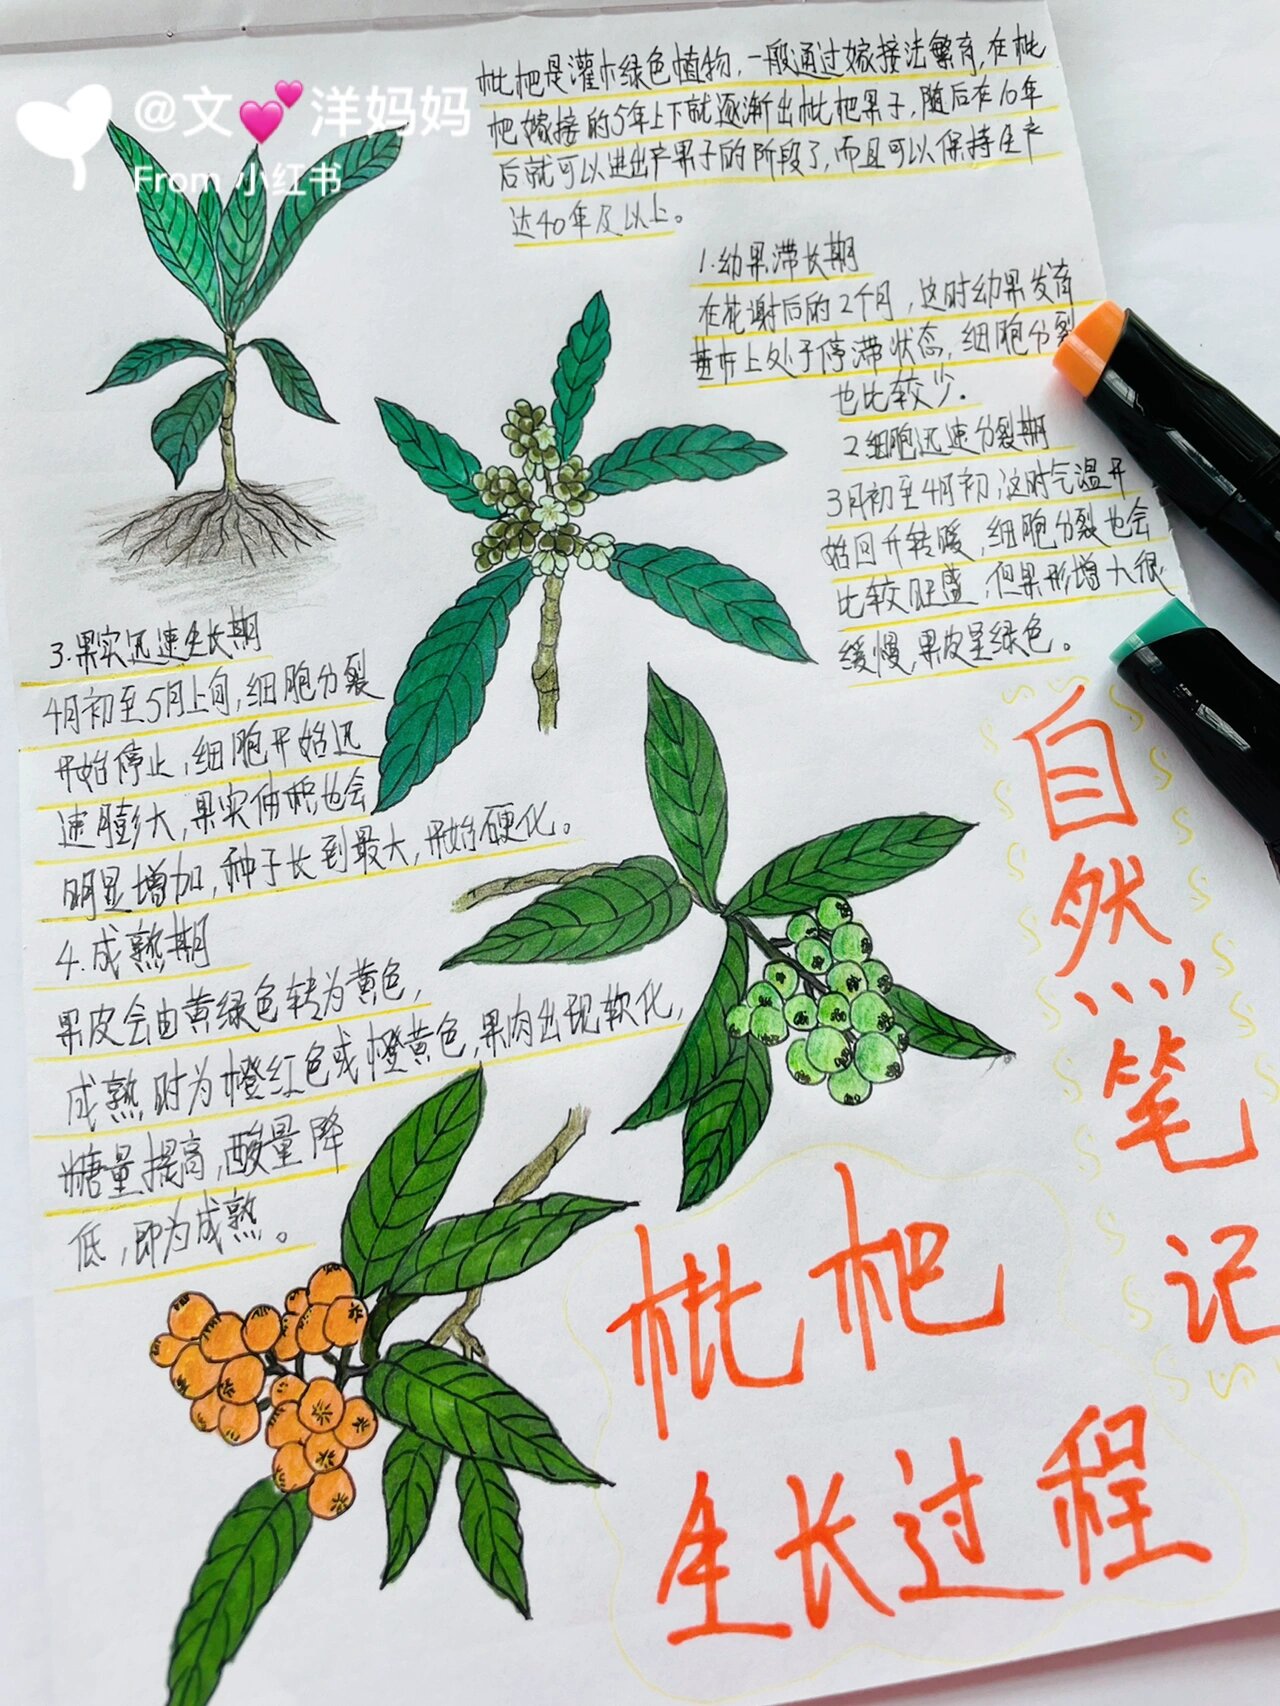 @文💕洋妈妈
From 小红书
枇杷是灌木绿色植物，一般通过嫁接法繁育，在枇
杷嫁接的5年上下就逐渐出枇杷果子，随后在10年
后就可以进出产果子的阶段了，而且可以保持生产
达40年及以上。
1.幼果滞长期
在花谢后的2个月，这时幼果发育
基本上处于停滞状态，细胞分裂
也比较少。
2.细胞迅速分裂期
3月初至4月初，这时气温开
始回升转暖，细胞分裂也会
比较旺盛，但果形增大很
缓慢，果皮呈绿色。
3.果实迅速生长期
4月初至5月上旬，细胞分裂
开始停止，细胞开始迅
速膨大，果实体积也会
明显增加，种子长到最大，开始硬化。
4.成熟期
果皮会由黄绿色转为黄色，
成熟时为橙红色或橙黄色，果肉出现软化，
糖量提高，酸量降
低，即为成熟。
自然笔记
枇杷
生长过程